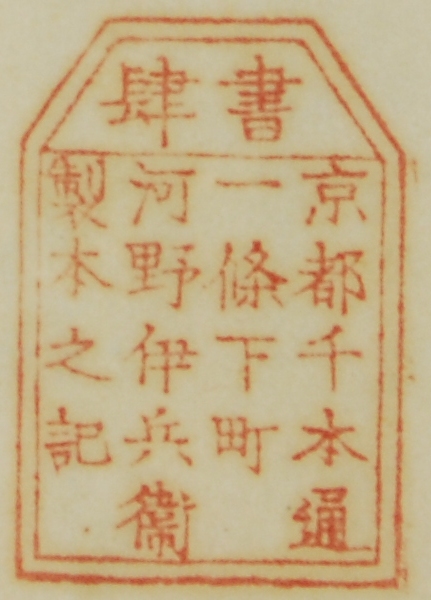 書肆
京都千本通
一條下町
河野伊兵衞
製本之記